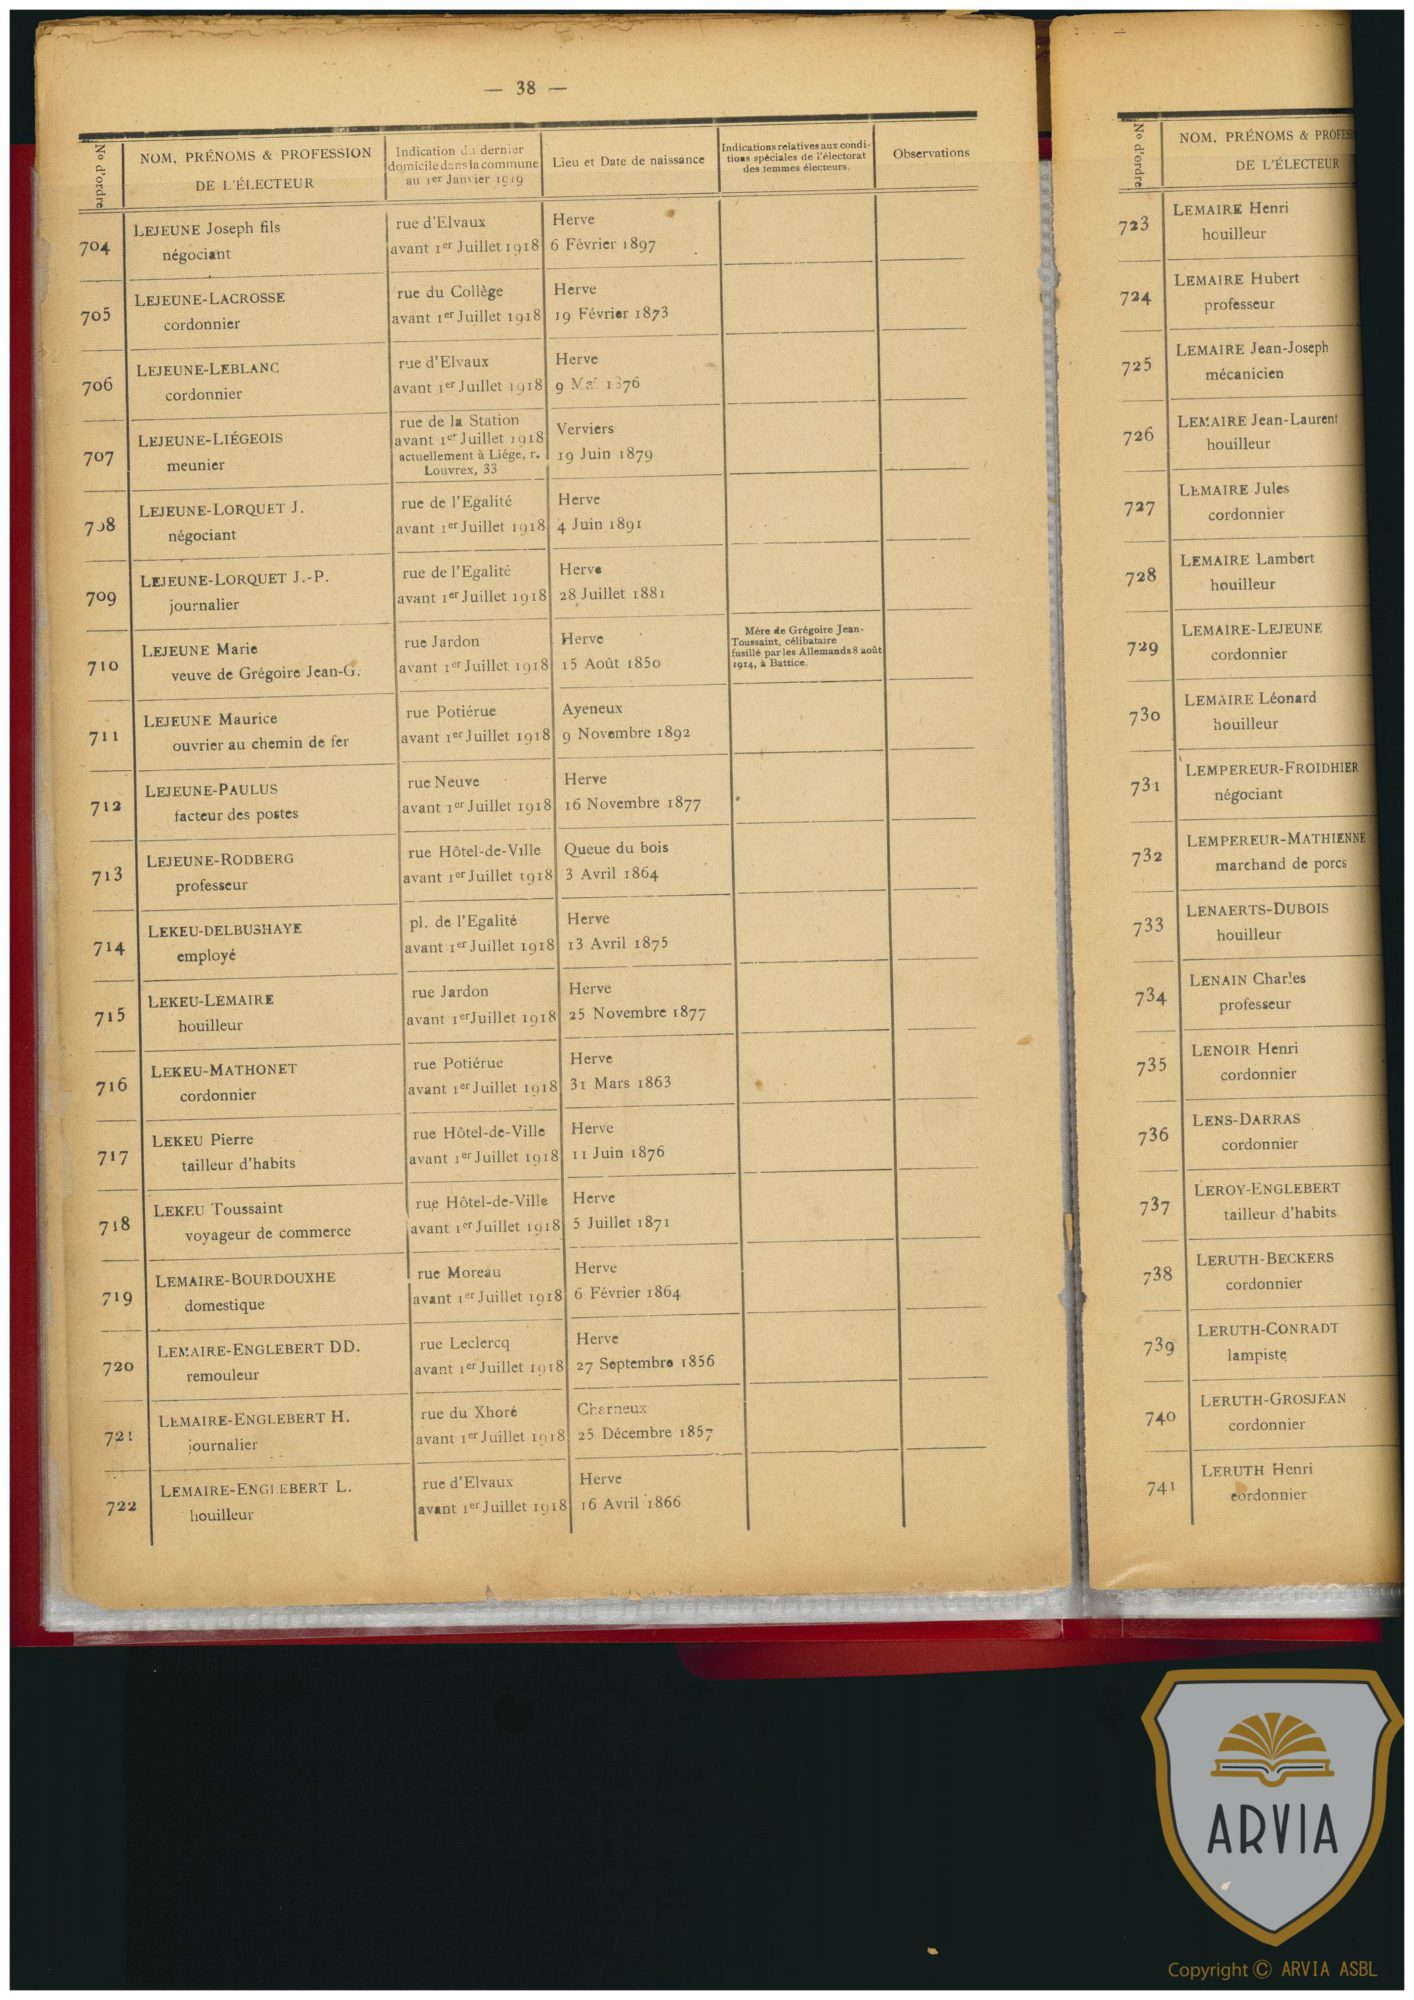 — 38 —
No d'ordre
NOM, PRÉNOMS & PROFESSION
DE L'ÉLECTEUR
Indication du dernier
domicile dans la commune
au 1er Janvier 1919
Lieu et Date de naissance
Indications relatives aux condi-
tions spéciales de l'électorat
des femmes électeurs.
Observations
704
LEJEUNE Joseph fils
négociant
rue d'Elvaux
avant 1er Juillet 1918
Herve
6 Février 1897
705
LEJEUNE-LACROSSE
cordonnier
rue du Collège
avant 1er Juillet 1918
Herve
19 Février 1873
706
LEJEUNE-LEBLANC
cordonnier
rue d'Elvaux
avant 1er Juillet 1918
Herve
9 Mai 1876
707
LEJEUNE-LIÉGEOIS
meunier
rue de la Station
avant 1er Juillet 1918
actuellement à Liége, r.
Louvrex, 33
Verviers
19 Juin 1879
708
LEJEUNE-LORQUET J.
négociant
rue de l'Egalité
avant 1er Juillet 1918
Herve
4 Juin 1891
709
LEJEUNE-LORQUET J.-P.
journalier
rue de l'Egalité
avant 1er Juillet 1918
Herve
28 Juillet 1881
710
LEJEUNE Marie
veuve de Grégoire Jean-G.
rue Jardon
avant 1er Juillet 1918
Herve
15 Août 1850
Mère de Grégoire Jean-
Toussaint, célibataire
fusillé par les Allemands 8 août
1914, à Battice.
711
LEJEUNE Maurice
ouvrier au chemin de fer
rue Potiérue
avant 1er Juillet 1918
Ayeneux
9 Novembre 1892
712
LEJEUNE-PAULUS
facteur des postes
rue Neuve
avant 1er Juillet 1918
Herve
16 Novembre 1877
713
LEJEUNE-RODBERG
professeur
rue Hôtel-de-Ville
avant 1er Juillet 1918
Queue du bois
3 Avril 1864
714
LEKEU-DELBUSHAYE
employé
pl. de l'Egalité
avant 1er Juillet 1918
Herve
13 Avril 1875
715
LEKEU-LEMAIRE
houilleur
rue Jardon
avant 1er Juillet 1918
Herve
25 Novembre 1877
716
LEKEU-MATHONET
cordonnier
rue Potiérue
avant 1er Juillet 1918
Herve
31 Mars 1863
717
LEKEU Pierre
tailleur d'habits
rue Hôtel-de-Ville
avant 1er Juillet 1918
Herve
11 Juin 1876
718
LEKEU Toussaint
voyageur de commerce
rue Hôtel-de-Ville
avant 1er Juillet 1918
Herve
5 Juillet 1871
719
LEMAIRE-BOURDOUXHE
domestique
rue Moreau
avant 1er Juillet 1918
Herve
6 Février 1864
720
LEMAIRE-ENGLEBERT DD.
remouleur
rue Leclercq
avant 1er Juillet 1918
Herve
27 Septembre 1856
721
LEMAIRE-ENGLEBERT H.
journalier
rue du Xhoré
avant 1er Juillet 1918
Charneux
25 Décembre 1857
722
LEMAIRE-ENGLEBERT L.
houilleur
rue d'Elvaux
avant 1er Juillet 1918
Herve
16 Avril 1866
No d'ordre
NOM, PRÉNOMS & PROFESS
DE L'ÉLECTEUR
723
LEMAIRE Henri
houilleur
724
LEMAIRE Hubert
professeur
725
LEMAIRE Jean-Joseph
mécanicien
726
LEMAIRE Jean-Laurent
houilleur
727
LEMAIRE Jules
cordonnier
728
LEMAIRE Lambert
houilleur
729
LEMAIRE-LEJEUNE
cordonnier
730
LEMAIRE Léonard
houilleur
731
LEMPEREUR-FROIDHIER
négociant
732
LEMPEREUR-MATHIENNE
marchand de porcs
733
LENAERTS-DUBOIS
houilleur
734
LENAIN Charles
professeur
735
LENOIR Henri
cordonnier
736
LENS-DARRAS
cordonnier
737
LEROY-ENGLEBERT
tailleur d'habits
738
LERUTH-BECKERS
cordonnier
739
LERUTH-CONRADT
lampiste
740
LERUTH-GROSJEAN
cordonnier
741
LERUTH Henri
cordonnier
ARVIA
Copyright © ARVIA ASBL